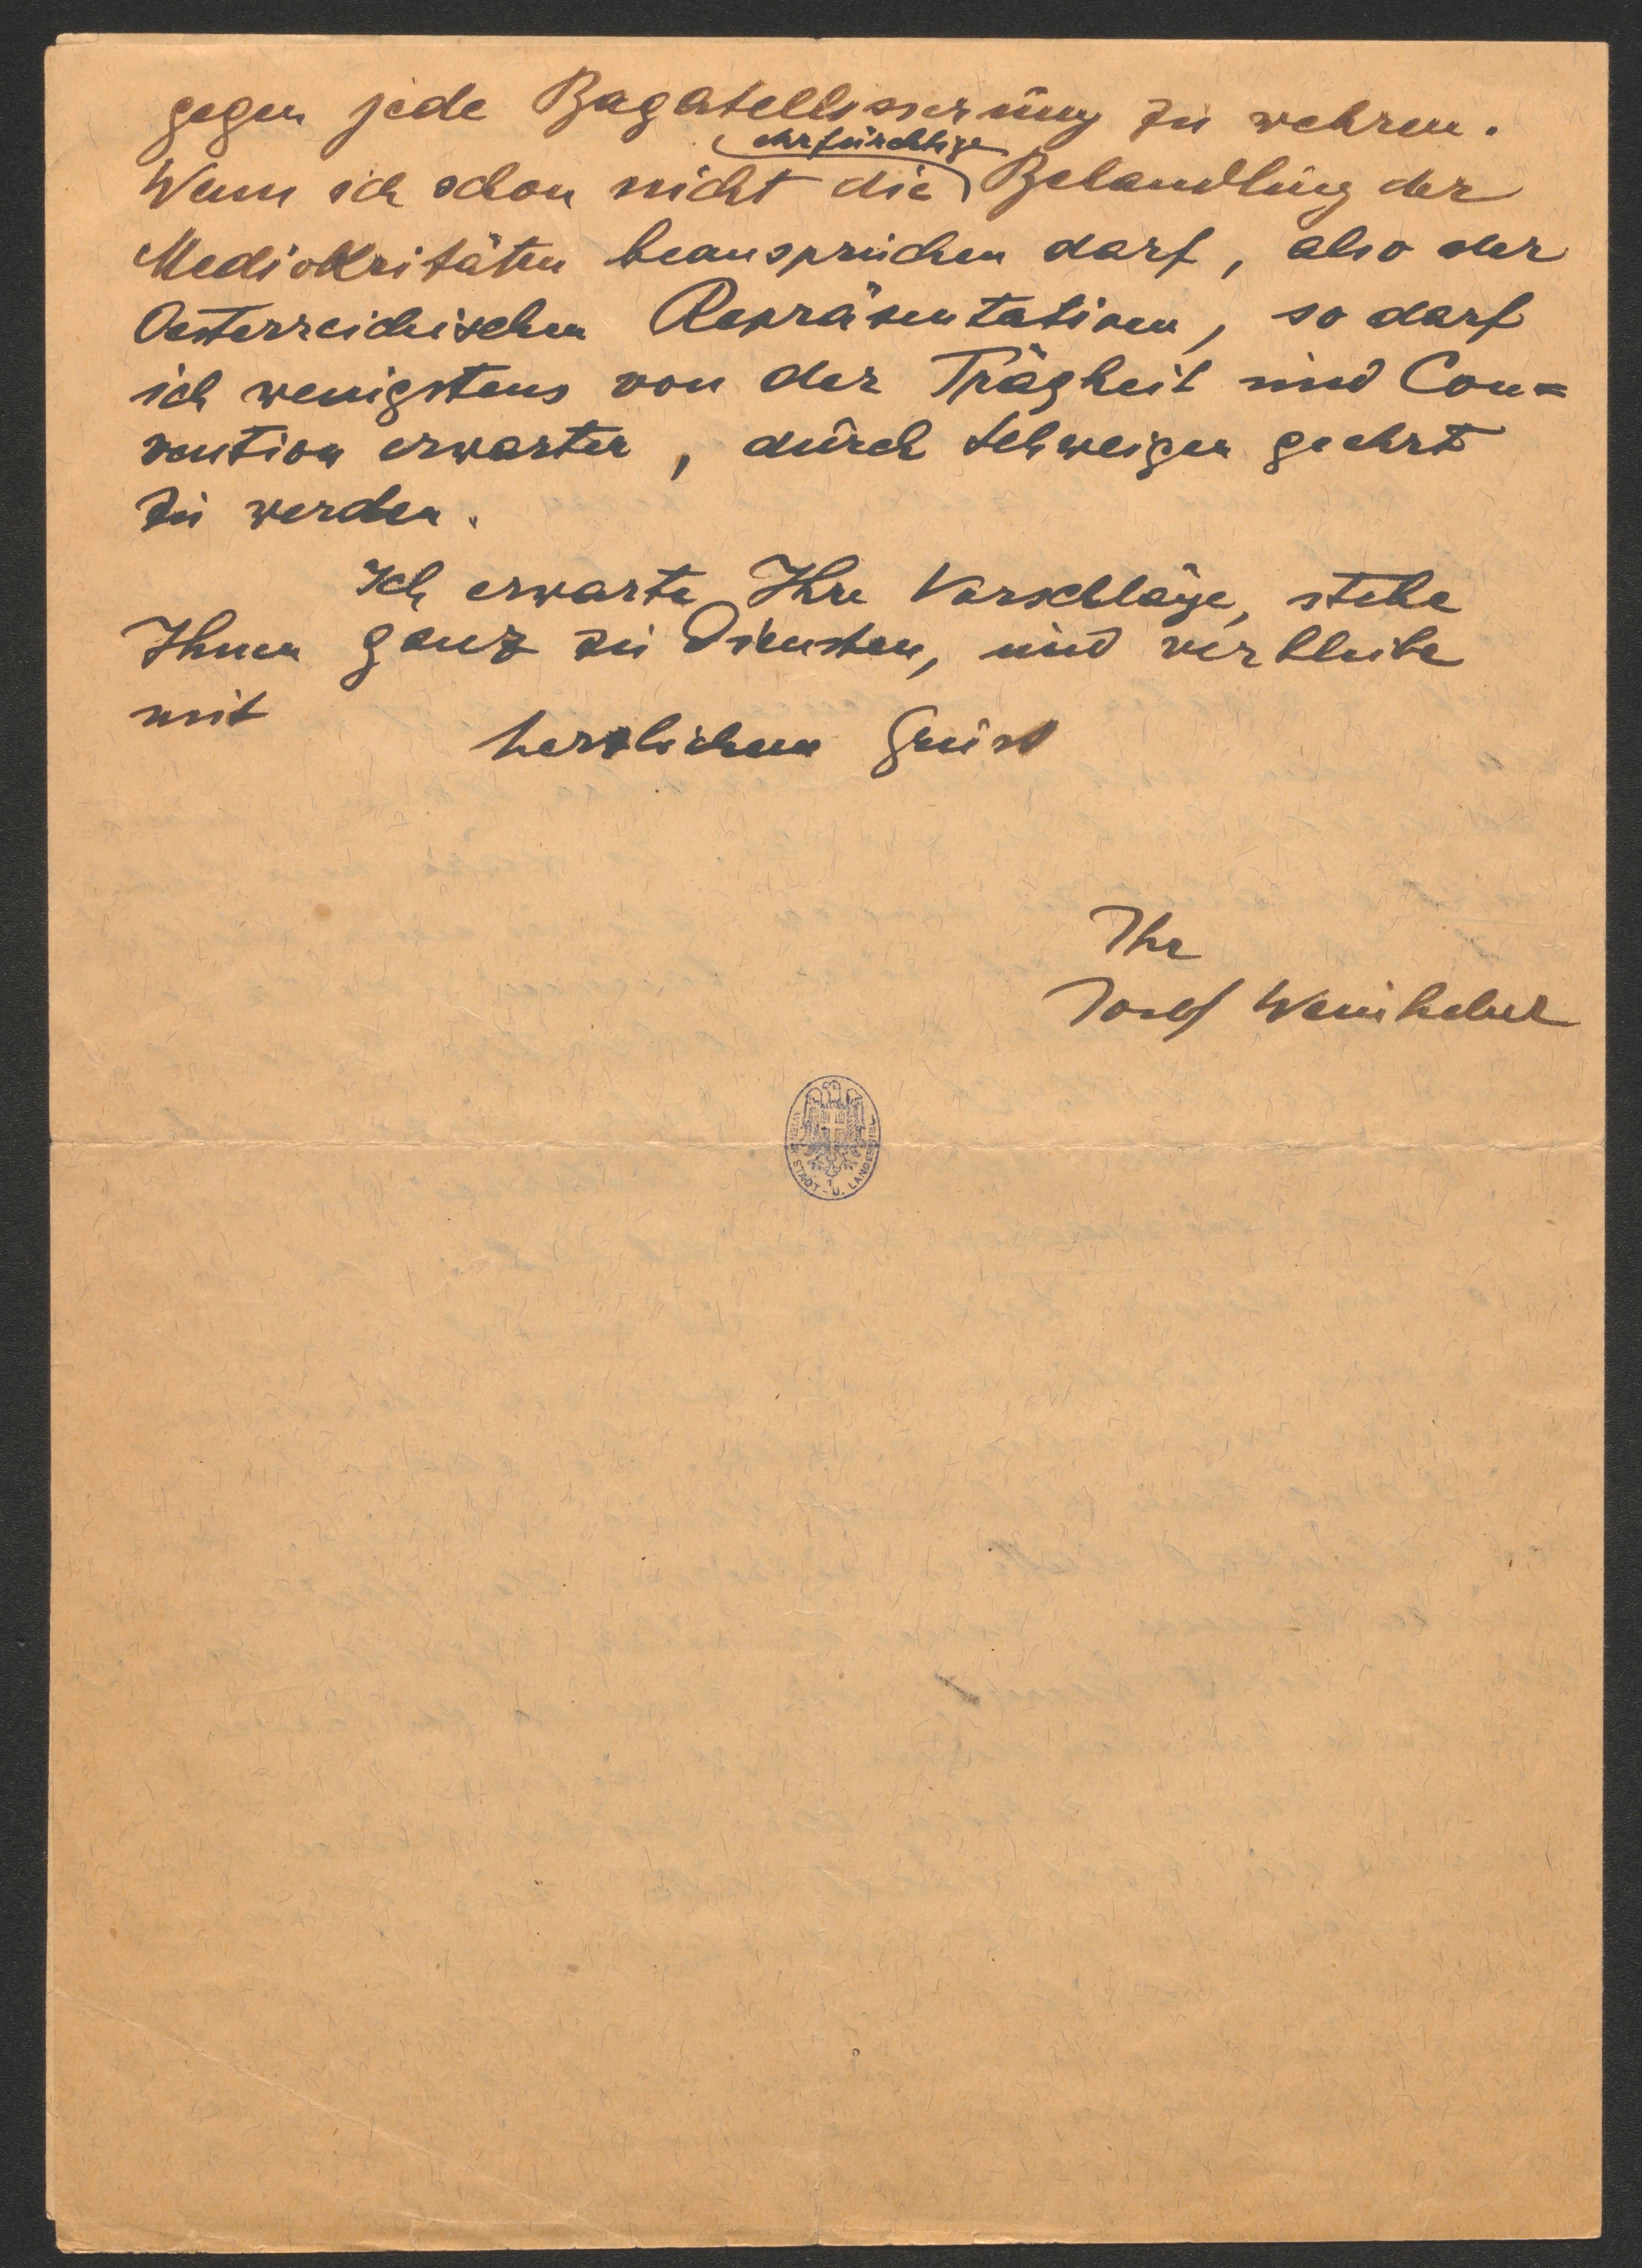 gegen jede Bagatellisierung zu wehren.
ehrfürchtige
Wenn ich schon nicht die Behandlung der
Mediokritäten beanspruchen darf, also der
Oesterreichischen Repräsentativen, so darf
ich wenigstens von der Trägheit und Con=
vention erwarten, durch Schweigen geehrt
zu werden.
Ich erwarte Ihre Vorschläge, stehe
Ihnen ganz zu Diensten, und verbleibe
mit
herzlichem Gruss
Ihr
Josef Weinheber
WIENER STADT - U. LANDESBIBL.